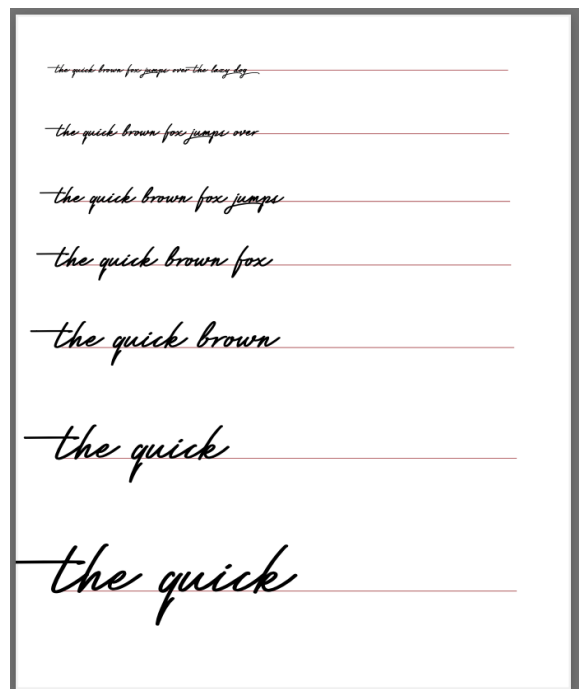 the quick brown fox jumps over the lazy dog
the quick brown fox jumps over
the quick brown fox jumps
the quick brown fox
the quick brown
the quick
the quick